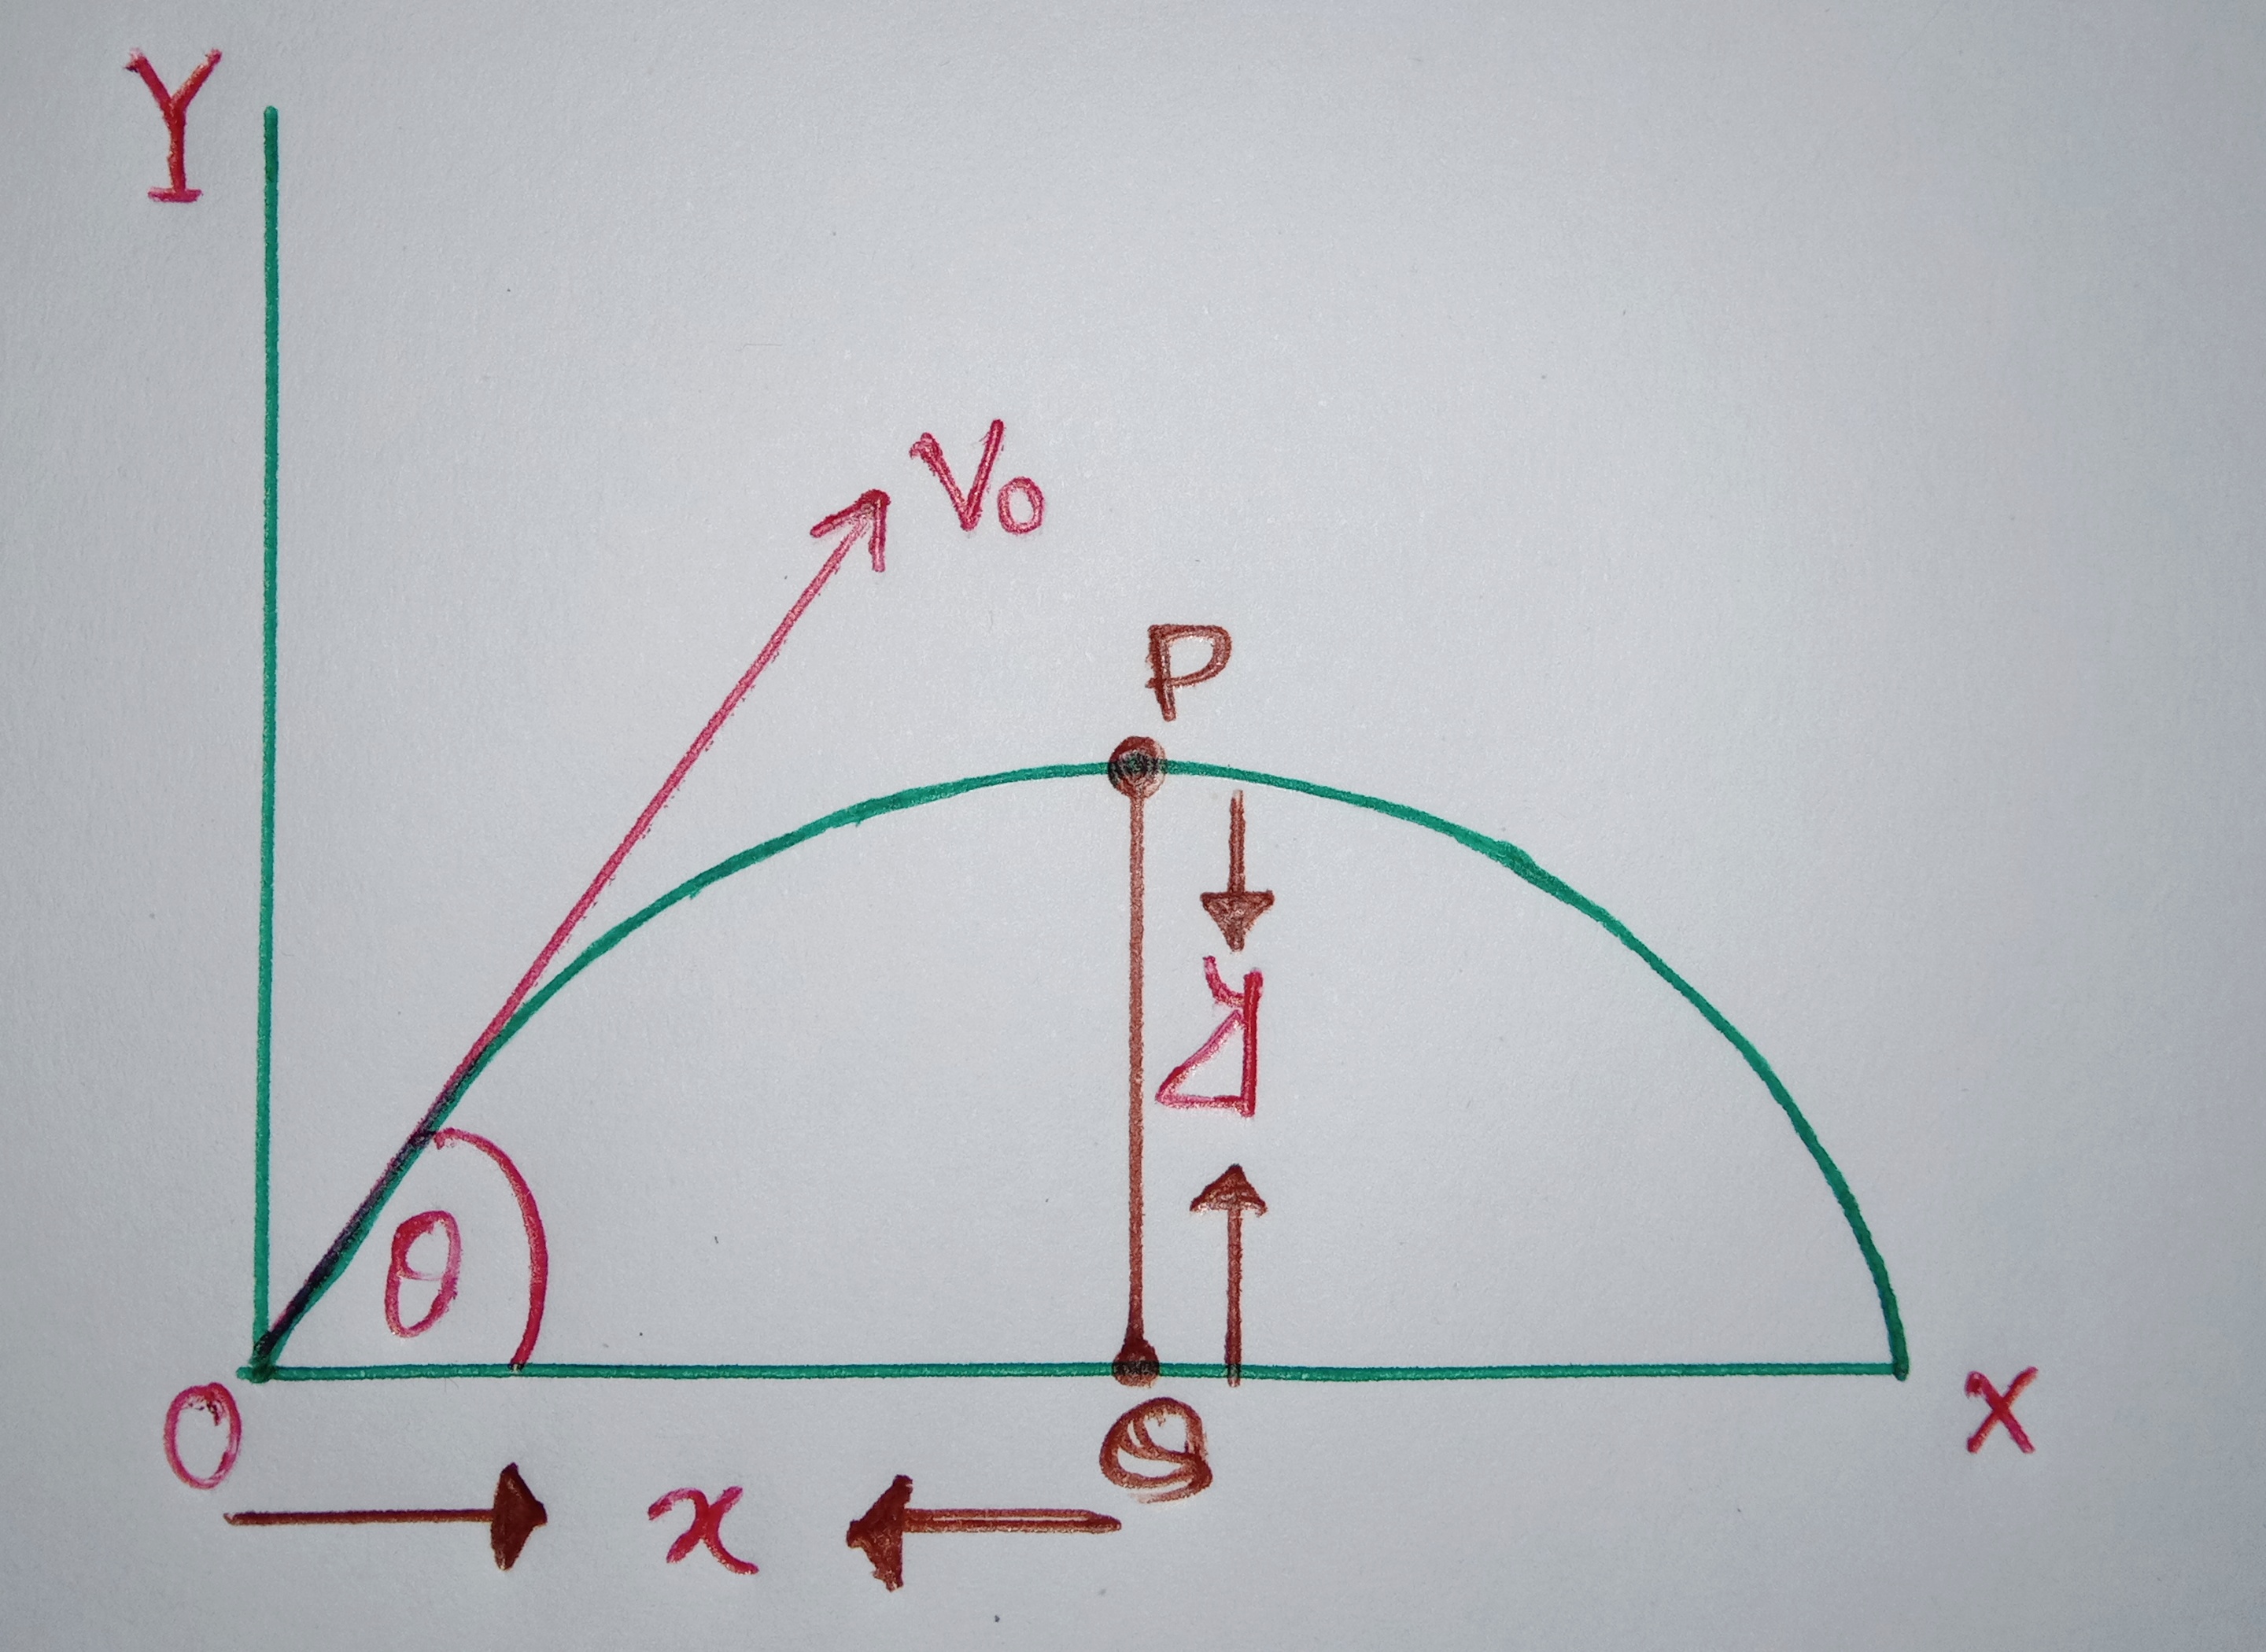 Y
V₀
P
y
θ
O
Q
X
x